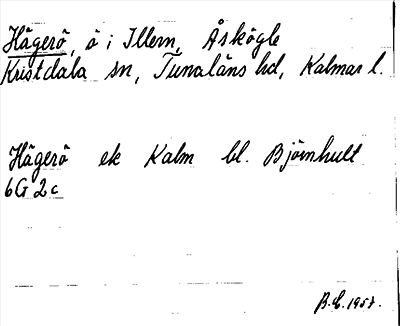 Hägerö, ö i Illern, Åskögle
Kristdala sn, Tunaläns hd, Kalmar l.
Hägerö ek Kalm bl. Björnhult
6G 2c
B.L. 1957.